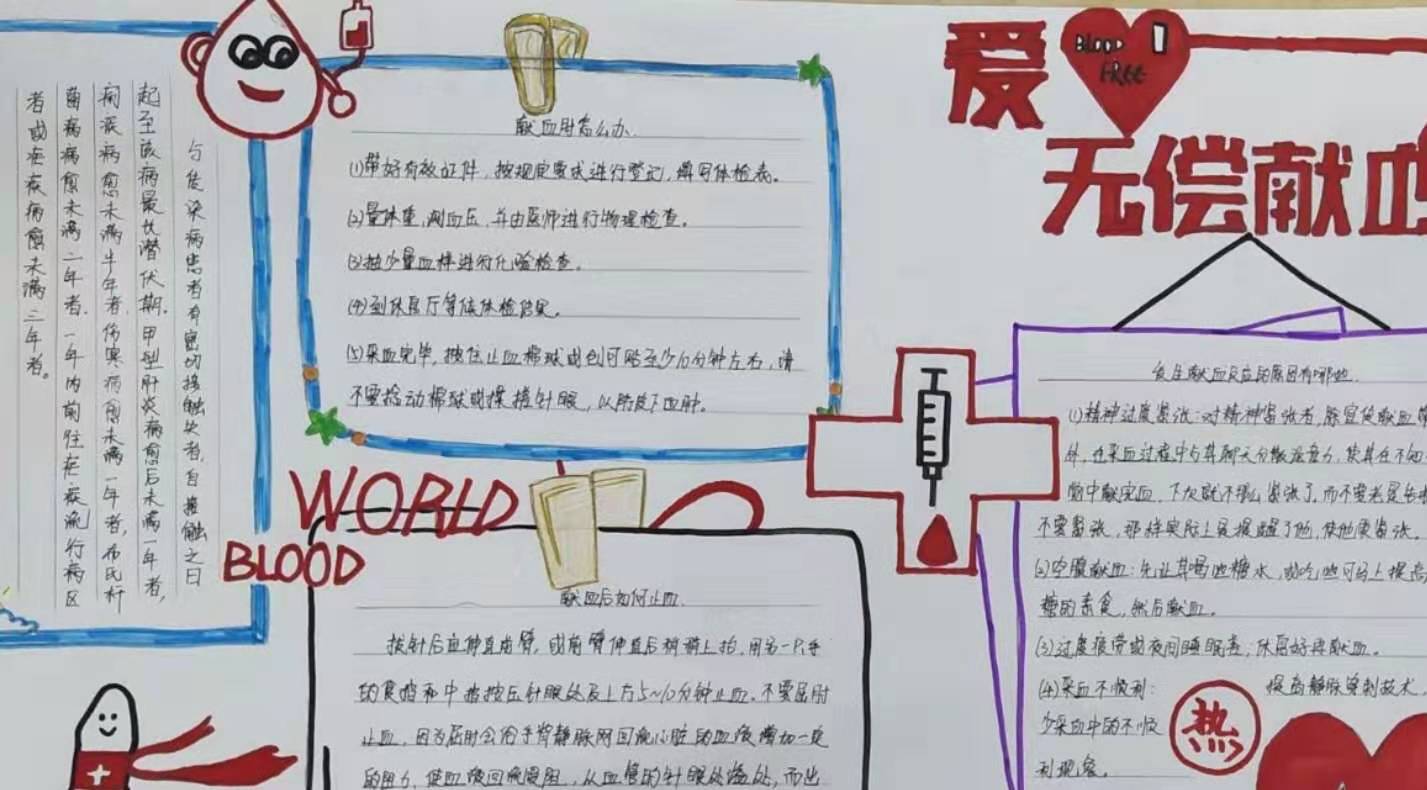 与传染病患者有密切接触史者,自接触之日
起至该病最长潜伏期。甲型肝炎病愈后未满一年者,
痢疾病愈未满半年者,伤寒病愈未满一年者,布氏杆
菌病病愈未满二年者。一年内前往疟疾流行病区
者或疟疾病愈未满三年者。
献血时怎么办.
(1)带好有效证件,按规定要求进行登记,填写体检表。
(2)量体重,测血压,并由医师进行物理检查。
(3)抽少量血样进行化验检查。
(4)到休息厅等候体检结果。
(5)采血完毕,按住止血棉球或创可贴至少10分钟左右,请
不要捻动棉球或揉搓针眼,以防皮下血肿。
WORLD
BLOOD
献血后如何止血.
拔针后应伸直前臂,或前臂伸直后稍稍上抬,用另一只手
的食指和中指按压针眼处及上方5~10分钟止血。不要屈肘
止血,因为屈肘会给手背静脉网回流心脏的血液增加一定
的阻力,使血液回流受阻,从血管的针眼处溢处,而出
爱
BLOOD
FREE
无偿献血
发生献血反应的原因有哪些.
(1)精神过度紧张:对精神紧张者,除宣传献血常
外,在采血过程中与其聊天分散注意力,使其在不知
觉中献完血,下次就不那么紧张了,而不要老是告
不要紧张,那样实际上是提醒了他,使他更紧张。
(2)空腹献血:先让其喝些糖水,或吃些可马上提高
糖的素食,然后献血。
(3)过度疲劳或夜间睡眠差;休息好再献血。
(4)采血不顺利: 提高静脉穿刺技术,
少采血中的不顺
利现象。
热